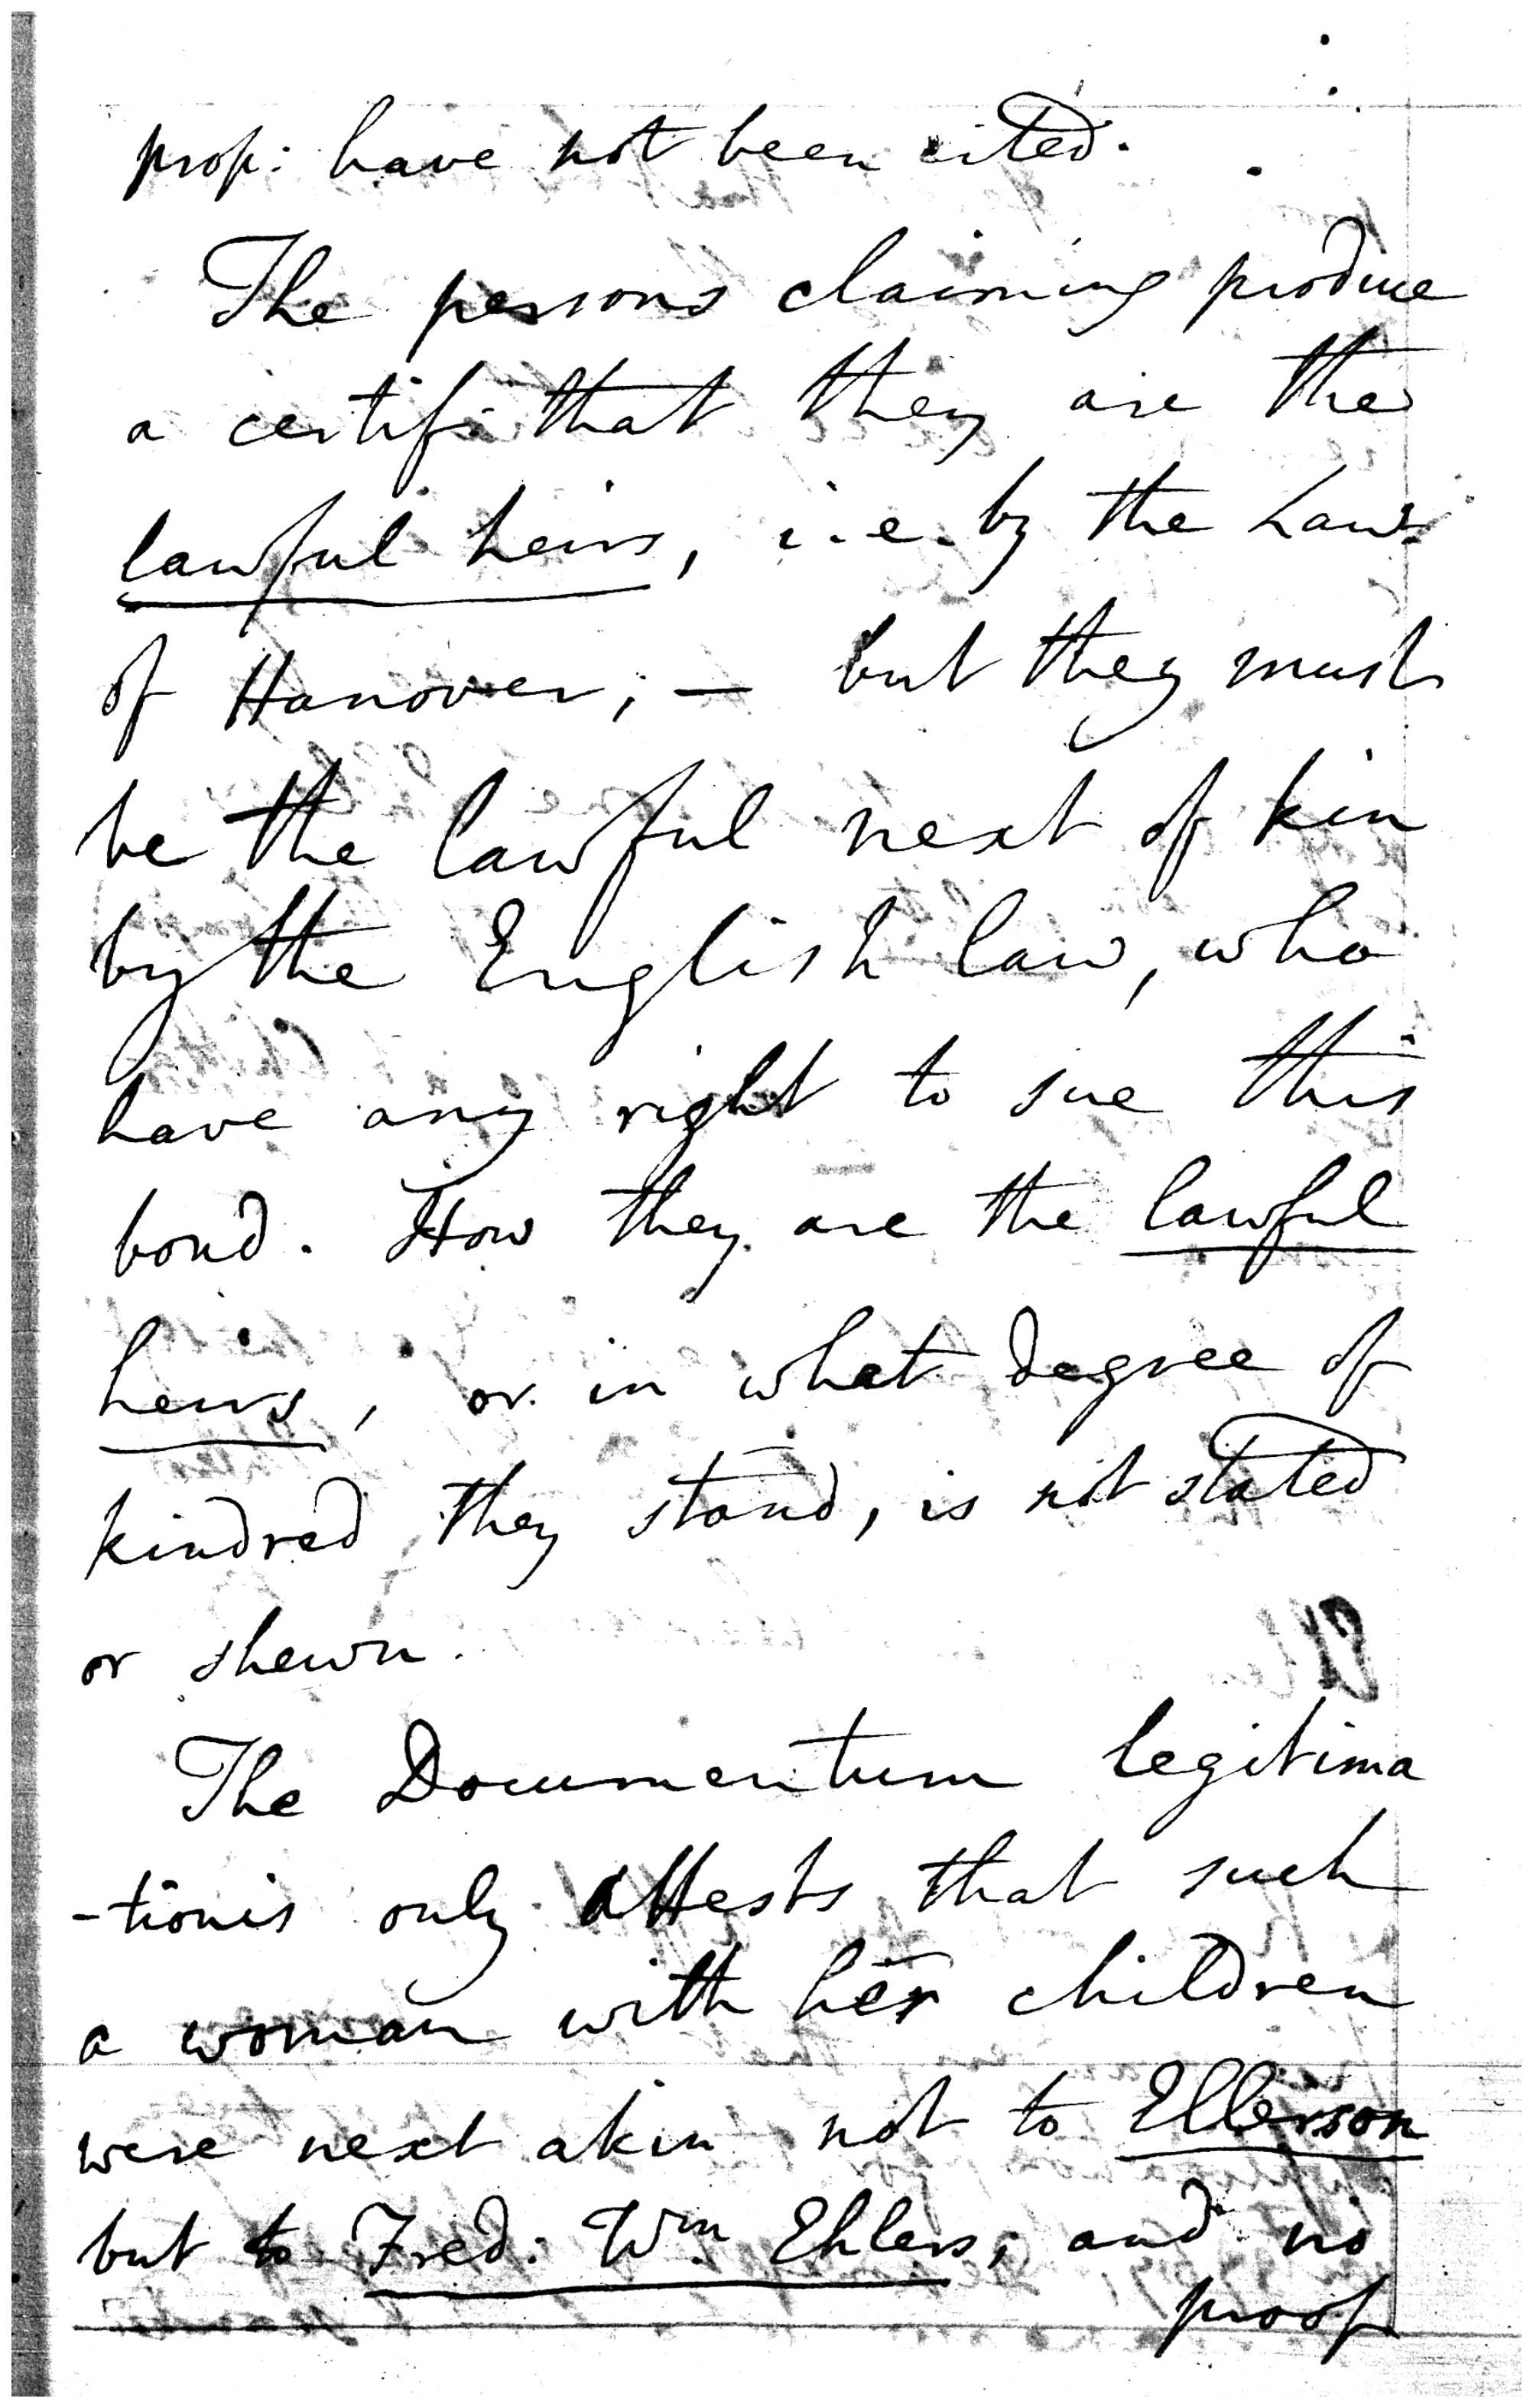 prop: have not been cited.
The persons claiming produce
a certif: that they are the
lawful heirs, i.e. by the Laws
of Hanover; — but they must
be the lawful next of kin
by the English law, who
have any right to sue this
bond. How they are the lawful
heirs, or in what degree of
kindred they stand, is not stated
or shewn.
The Documentum legitima
-tionis only attests that such
a woman with her children
were next akin not to Ellerson
but to Fred: Wm Ehlers; and no
proof